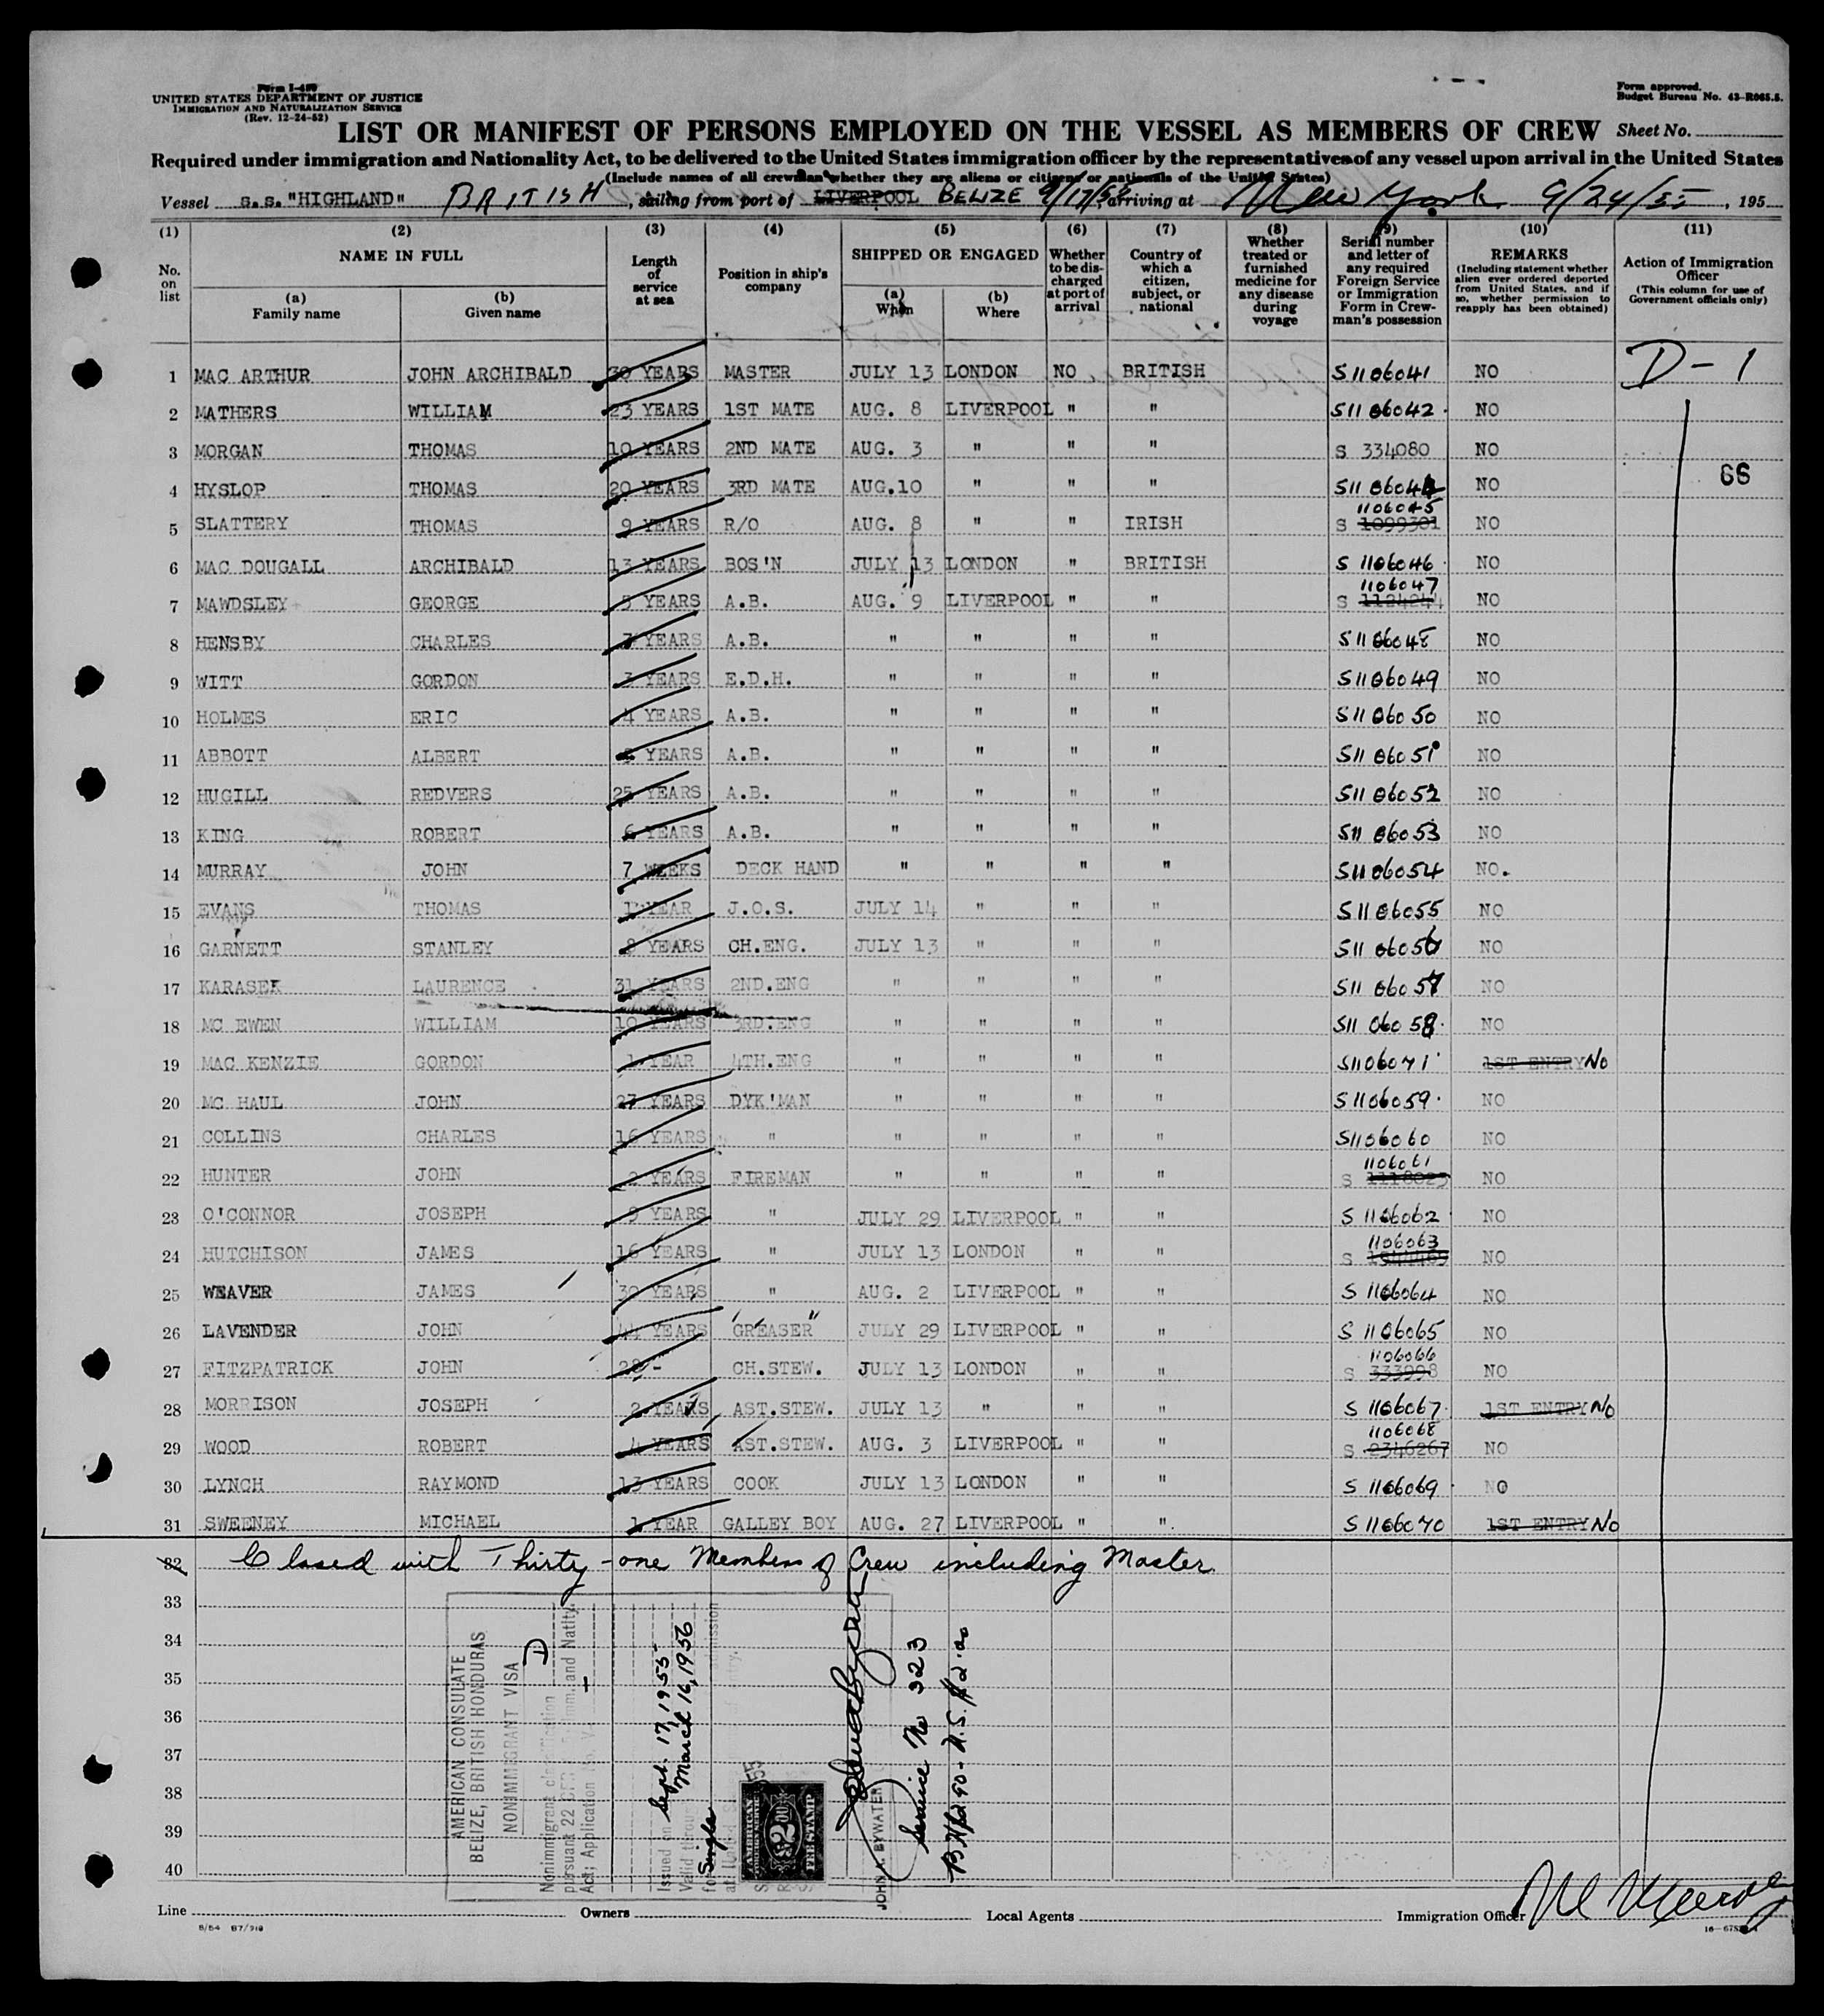 Form I-489
UNITED STATES DEPARTMENT OF JUSTICE
IMMIGRATION AND NATURALIZATION SERVICE
(Rev. 12-24-52)
Form approved.
Budget Bureau No. 43-R065.5.
LIST OR MANIFEST OF PERSONS EMPLOYED ON THE VESSEL AS MEMBERS OF CREW Sheet No.
Required under immigration and Nationality Act, to be delivered to the United States immigration officer by the representatives of any vessel upon arrival in the United States
(Include names of all crewman whether they are aliens or citizens or nationals of the United States)
Vessel S.S. "HIGHLAND" BRITISH, sailing from port of LIVERPOOL BELIZE 9/17/55, arriving at New York 9/24/55, 195
(1) No. on list
(2) NAME IN FULL (a) Family name (b) Given name
(3) Length of service at sea
(4) Position in ship's company
(5) SHIPPED OR ENGAGED (a) When (b) Where
(6) Whether to be discharged at port of arrival
(7) Country of which a citizen, subject, or national
(8) Whether treated or furnished medicine for any disease during voyage
(9) Serial number and letter of any required Foreign Service or Immigration Form in Crewman's possession
(10) REMARKS (Including statement whether alien ever ordered deported from United States, and if so, whether permission to reapply has been obtained)
(11) Action of Immigration Officer (This column for use of Government officials only)
1 MAC ARTHUR JOHN ARCHIBALD 30 YEARS MASTER JULY 13 LONDON NO BRITISH S1106041 NO D-1
2 MATHERS WILLIAM 23 YEARS 1ST MATE AUG. 8 LIVERPOOL " " S1106042 NO
3 MORGAN THOMAS 10 YEARS 2ND MATE AUG. 3 " " " S 334080 NO
4 HYSLOP THOMAS 20 YEARS 3RD MATE AUG.10 " " " S1106044 NO 66
5 SLATTERY THOMAS 9 YEARS R/O AUG. 8 " " IRISH S 1099301 1106045 NO
6 MAC DOUGALL ARCHIBALD 13 YEARS BOS'N JULY 13 LONDON " BRITISH S 1106046 NO
7 MAWDSLEY GEORGE 5 YEARS A.B. AUG. 9 LIVERPOOL " " S 1106047 NO
8 HENSBY CHARLES 7 YEARS A.B. " " " " S1106048 NO
9 WITT GORDON 3 YEARS E.D.H. " " " " S1106049 NO
10 HOLMES ERIC 4 YEARS A.B. " " " " S1106050 NO
11 ABBOTT ALBERT YEARS A.B. " " " " S1106051 NO
12 HUGILL REDVERS 25 YEARS A.B. " " " " S1106052 NO
13 KING ROBERT 6 YEARS A.B. " " " " S1106053 NO
14 MURRAY JOHN 7 WEEKS DECK HAND " " " " S1106054 NO.
15 EVANS THOMAS 1 YEAR J.O.S. JULY 14 " " " S1106055 NO
16 GARNETT STANLEY 8 YEARS CH.ENG. JULY 13 " " " S1106056 NO
17 KARASEK LAURENCE 31 YEARS 2ND.ENG " " " " S1106057 NO
18 MC EWEN WILLIAM 10 YEARS 3RD.ENG " " " " S1106058 NO
19 MAC KENZIE GORDON 1 YEAR 4TH.ENG " " " " S1106071 1ST ENTRY No
20 MC HAUL JOHN 27 YEARS DYK'MAN " " " " S1106059 NO
21 COLLINS CHARLES 16 YEARS " " " " " S1106060 NO
22 HUNTER JOHN 2 YEARS FIREMAN " " " " S 1118025 1106061 NO
23 O'CONNOR JOSEPH 9 YEARS " JULY 29 LIVERPOOL " " S 1106062 NO
24 HUTCHISON JAMES 16 YEARS " JULY 13 LONDON " " S 1106063 NO
25 WEAVER JAMES 30 YEARS " AUG. 2 LIVERPOOL " " S 1106064 NO
26 LAVENDER JOHN 44 YEARS "GREASER" JULY 29 LIVERPOOL " " S 1106065 NO
27 FITZPATRICK JOHN 28 - CH.STEW. JULY 13 LONDON " " S 333998 1106066 NO
28 MORRISON JOSEPH 2 YEARS AST.STEW. JULY 13 " " " S 1106067 1ST ENTRY No
29 WOOD ROBERT 4 YEARS AST.STEW. AUG. 3 LIVERPOOL " " S 2346267 1106068 NO
30 LYNCH RAYMOND 13 YEARS COOK JULY 13 LONDON " " S 1106069 NO
31 SWEENEY MICHAEL 1 YEAR GALLEY BOY AUG. 27 LIVERPOOL " " S 1106070 1ST ENTRY No
32 Closed with Thirty-one Members of Crew including Master
33
34
35
36
37
38
39
40
AMERICAN CONSULATE
BELIZE, BRITISH HONDURAS
NONIMMIGRANT VISA
Nonimmigrant classification D
pursuant 22 CFR Imm. and Natlty.
Act; Application No. V. -
Issued on Sept. 17, 1955
Valid through March 16, 1956
for Single
AMERICAN
$2.00
FEE STAMP
JOHN A. BYWATER
Service No 323
Line Owners Local Agents Immigration Officer